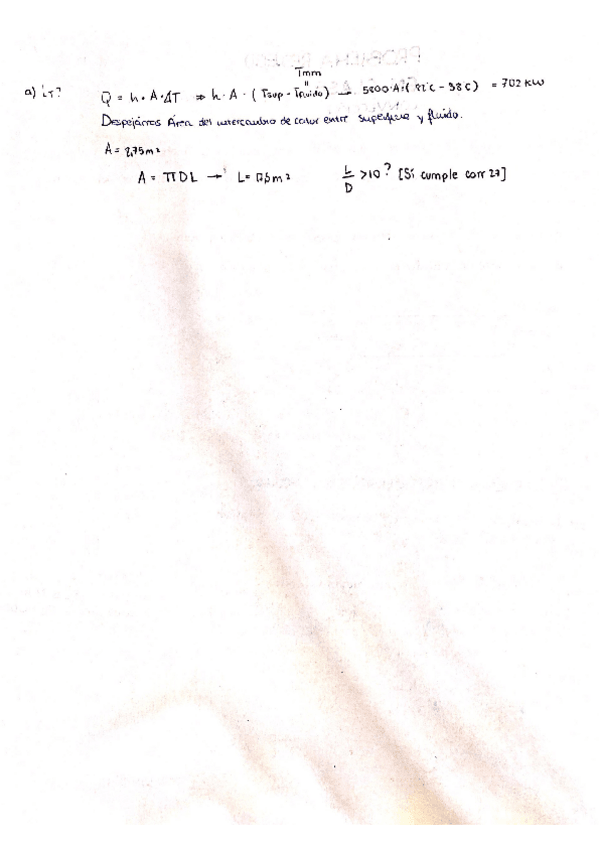 Tmm
"
a) LT? Q̇ = h · A · ΔT ⇒ h · A · (Tsup - Tfluido) → 5800 · A · (82°C - 38°C) = 702 kW
Despejamos Área del intercambio de calor entre superficie y fluido.
A = 2,75 m²
A = πDL → L = m² L/D > 10? [Sí cumple corr 27]